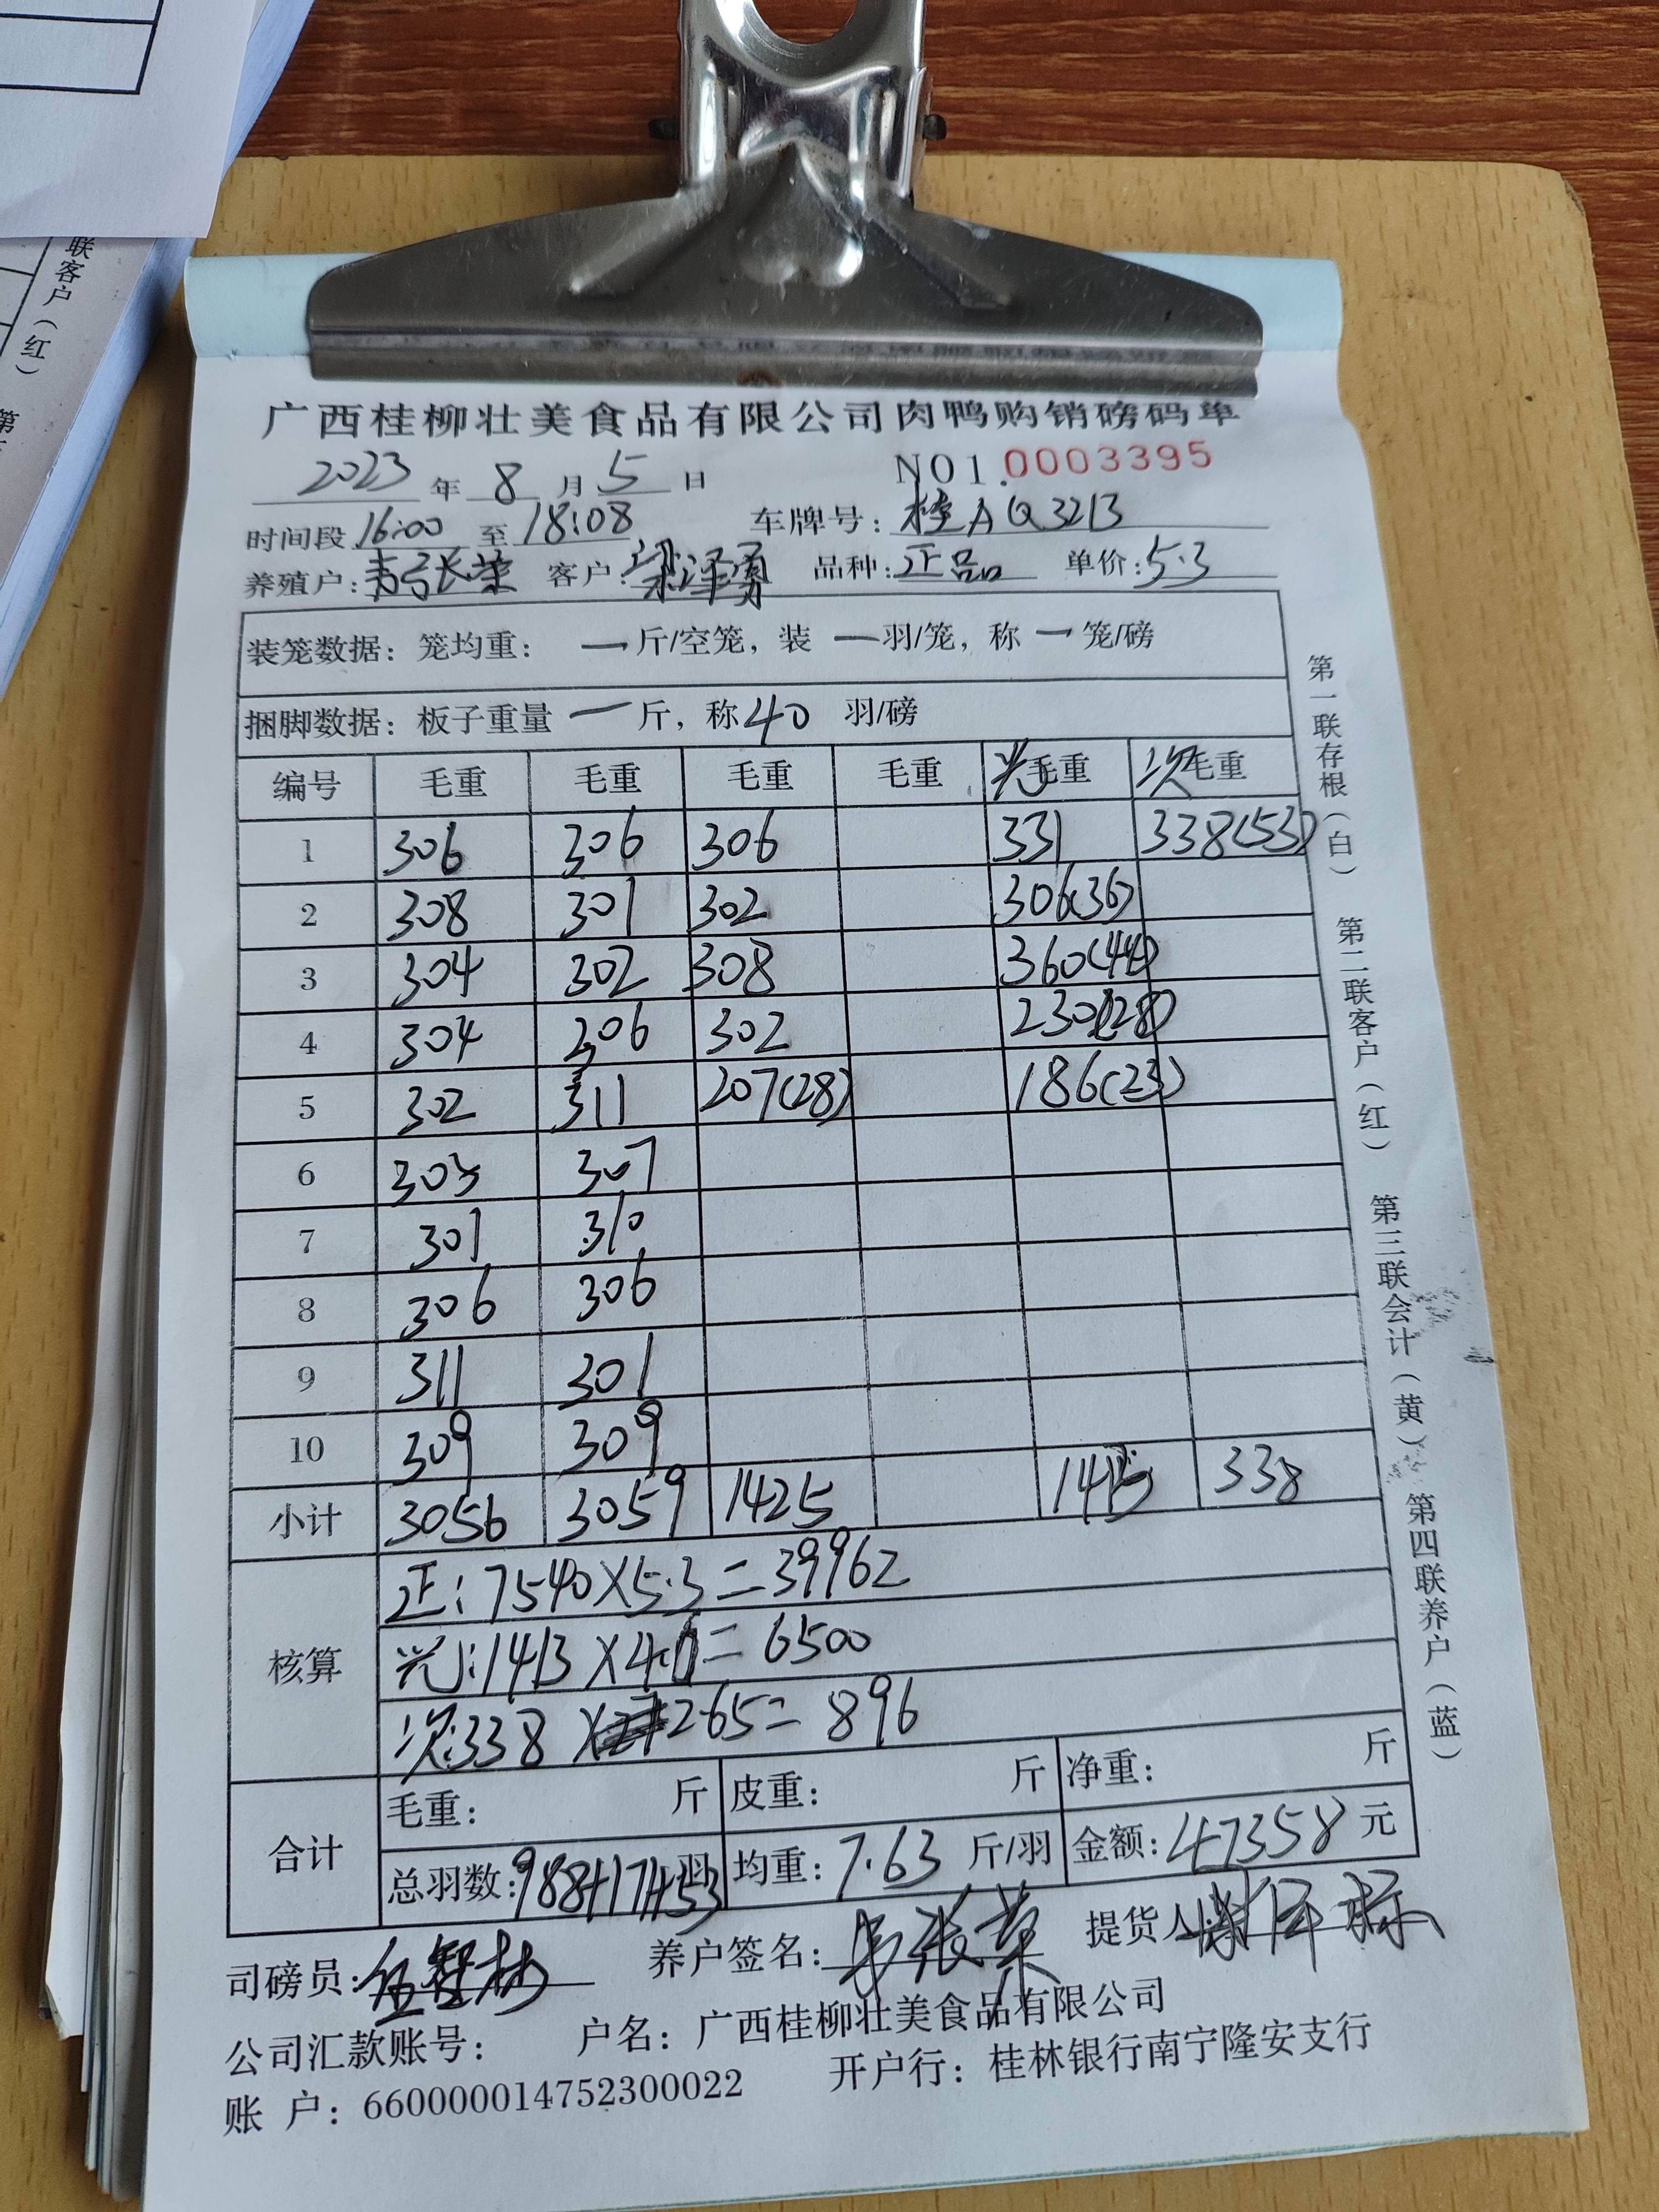 联客户（红）
第
广西桂柳壮美食品有限公司肉鸭购销磅码单
2023 年 8 月 5 日 NO1.0003395
时间段 16:00 至 18:08 车牌号: 桂AQ3213
养殖户: 韦张荣 客户: 梁泽勇 品种: 正品 单价: 5.3
装笼数据: 笼均重: 一 斤/空笼, 装 一 羽/笼, 称 一 笼/磅
捆脚数据: 板子重量 一 斤, 称 40 羽/磅
编号 毛重 毛重 毛重 毛重 毛重 次毛重
1 306 306 306 331 338(53)
2 308 301 302 306(36)
3 304 302 308 360(44)
4 304 306 302 230(28)
5 302 311 207(28) 186(23)
6 305 307
7 301 310
8 306 306
9 311 301
10 309 309
小计 3056 3059 1425 1413 338
核算
正: 7540×5.3=39962
1413×4.6=6500
次:338×2.65=896
合计
毛重: 斤 皮重: 斤 净重: 斤
总羽数: 988+171+53 羽 均重: 7.63 斤/羽 金额: 47358 元
司磅员: 养户签名: 韦张荣 提货人:
公司汇款账号: 户名: 广西桂柳壮美食品有限公司
账 户: 660000014752300022 开户行: 桂林银行南宁隆安支行
第一联存根（白） 第二联客户（红） 第三联会计（黄） 第四联养户（蓝）